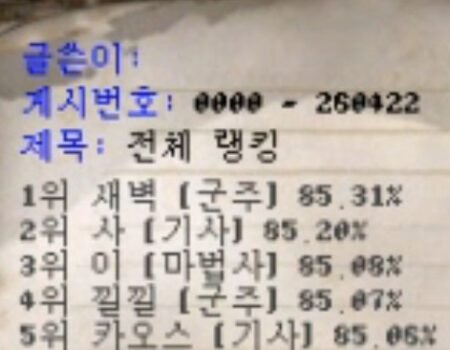 글쓴이:
게시번호: 0000 - 260422
제목: 전체 랭킹
1위 새벽 [군주] 85.31%
2위 사 [기사] 85.20%
3위 이 [마법사] 85.08%
4위 낄낄 [군주] 85.07%
5위 카오스 [기사] 85.06%